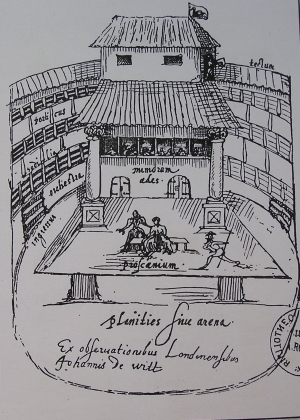 tectum
porticus
sedilia
orchestra
ingressus
mimorum
ædes
proscænium
planities siue arena
Ex obseruationibus Londinensibus
Johannis de witt
BIBLIOTHEC